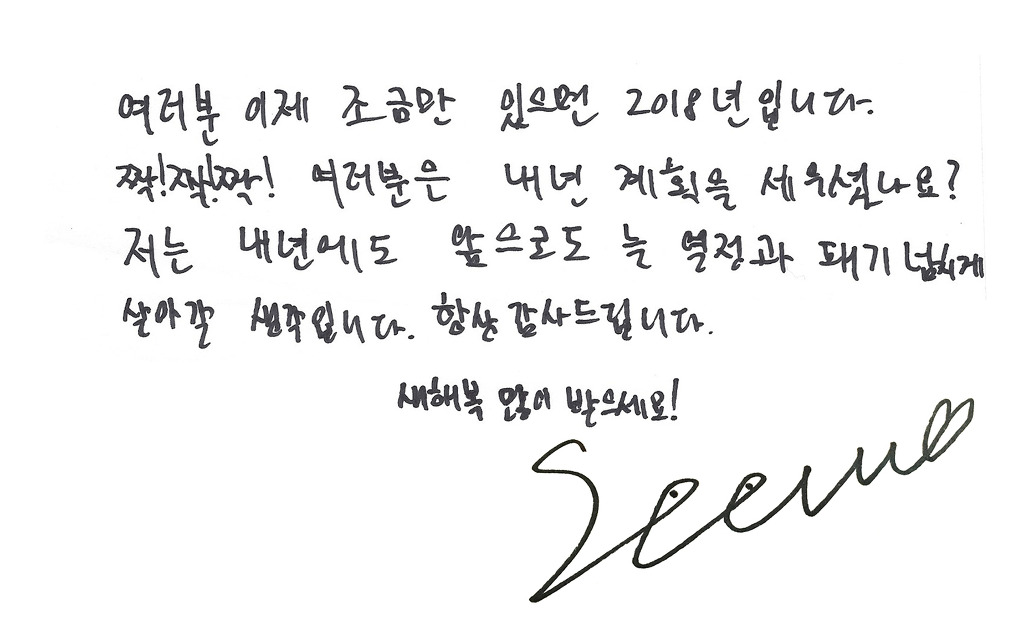 여러분 이제 조금만 있으면 2018년입니다.
짝!짝!짝! 여러분은 내년 계획을 세우셨나요?
저는 내년에도 앞으로도 늘 열정과 패기 넘치게
살아갈 생각입니다. 항상 감사드립니다.
새해복 많이 받으세요!
Seeun